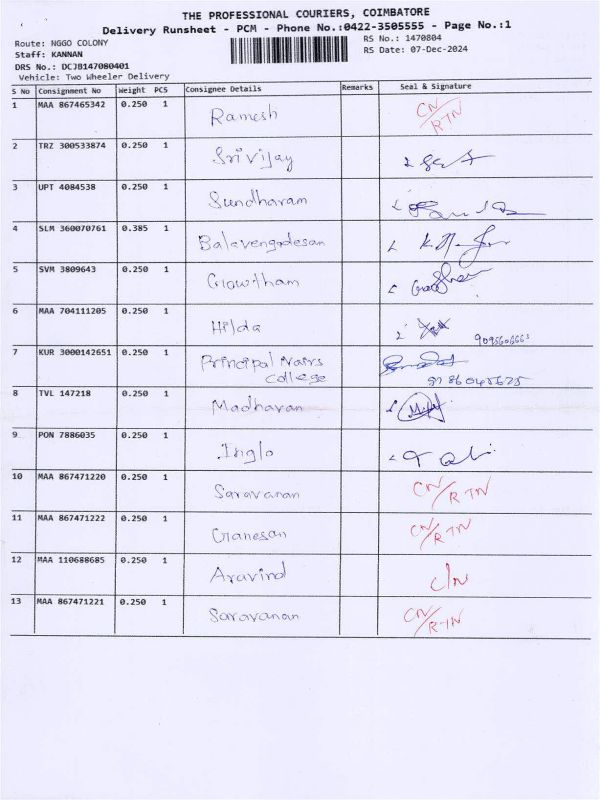 THE PROFESSIONAL COURIERS, COIMBATORE
Delivery Runsheet - PCM - Phone No.:0422-3505555 - Page No.:1
Route: NGGO COLONY
RS No.: 1470804
Staff: KANNAN
RS Date: 07-Dec-2024
DRS No.: DCJB147080401
Vehicle: Two Wheeler Delivery
S No Consignment No Weight PCS Consignee Details Remarks Seal & Signature
1 MAA 867465342 0.250 1 Ramesh CN/RTN
2 TRZ 300533874 0.250 1 Srivijay
3 UPT 4084538 0.250 1 Sundharam
4 SLM 360070761 0.385 1 Balavengadesan
5 SVM 3809643 0.250 1 Gowtham
6 MAA 704111205 0.250 1 Hilda
7 KUR 3000142651 0.250 1 Principal Nairs
college
8 TVL 147218 0.250 1 Madhavan
9 PON 7886035 0.250 1 Inglo
10 MAA 867471220 0.250 1 Saravanan CN/RTN
11 MAA 867471222 0.250 1 Ganesan CN/RTN
12 MAA 110688685 0.250 1 Aravind C/N
13 MAA 867471221 0.250 1 Saravanan CN/RTN